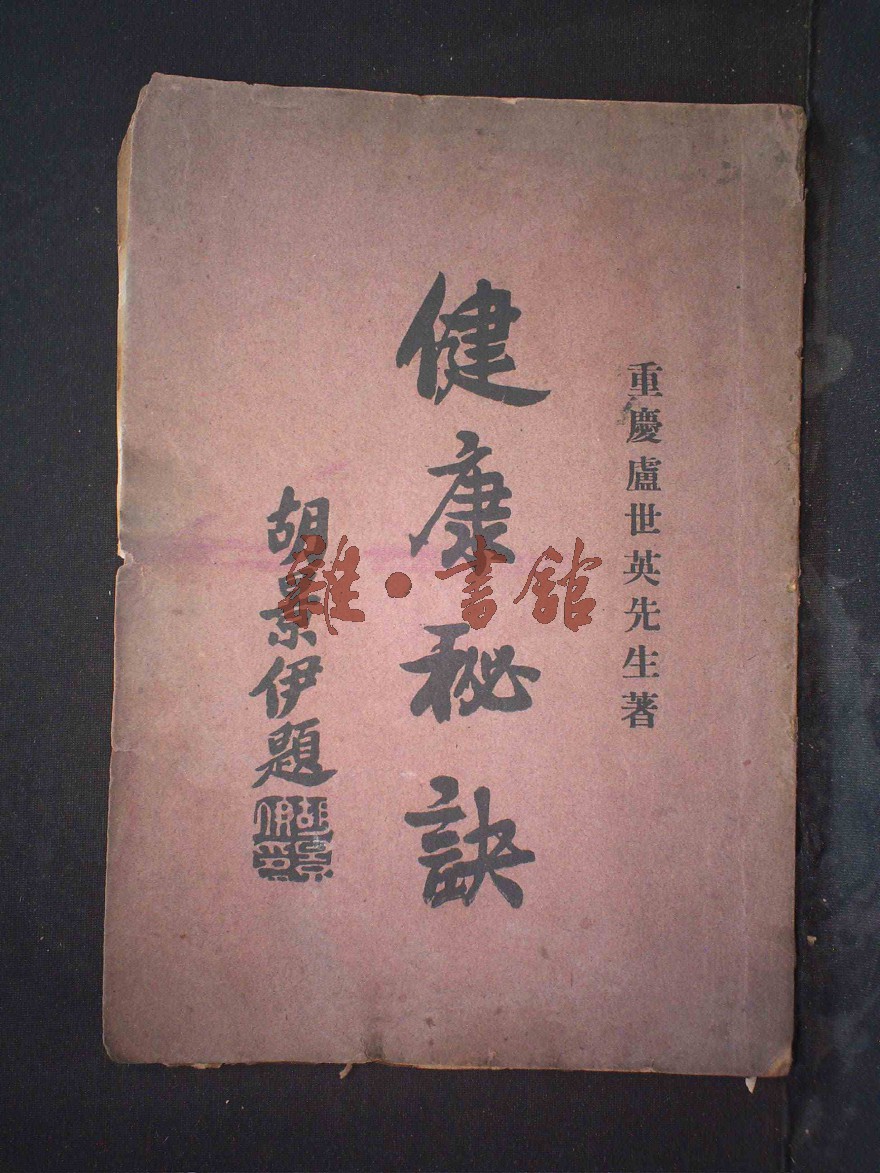 重慶盧世英先生著
健康秘訣
胡景伊題
雜·書館